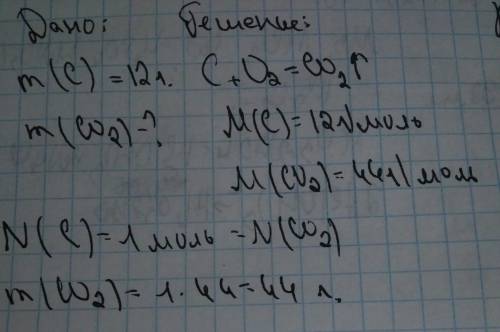 Дано: Решение:
m(C) = 12г. C + O₂ = CO₂↑
m(CO₂) - ? M(C) = 12г/моль
M(CO₂) = 44г/моль
N(C) = 1 моль = N(CO₂)
m(CO₂) = 1 · 44 = 44 г.